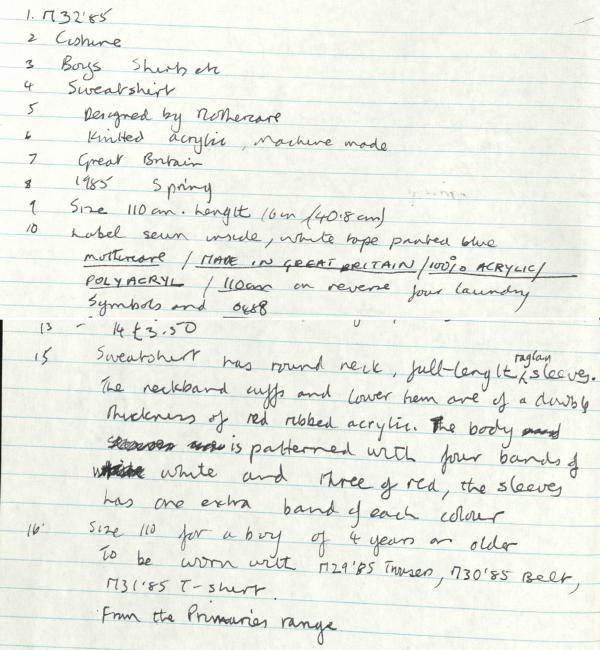 1. M32'85
2 Costume
3 Boys Shirts etc
4 Sweatshirt
5 Designed by Mothercare
6 Knitted acrylic, Machine made
7 Great Britain
8 1985 Spring
9 Size 110 cm. Length 16 in (40.8 cm)
10 Label sewn inside, white tape printed blue
mothercare / MADE IN GREAT BRITAIN / 100% ACRYLIC /
POLYACRYL / 110cm on reverse four laundry
symbols and 0688
13 - 14 £3.50
15 Sweatshirt has round neck, full-length raglan sleeves.
The neckband cuffs and lower hem are of a double
thickness of red ribbed acrylic. The body
is patterned with four bands of
white and three of red, the sleeves
has one extra band of each colour
16 Size 110 for a boy of 4 years or older
To be worn with M29'85 Trousers, M30'85 Belt,
M31'85 T-shirt.
From the Primaries range